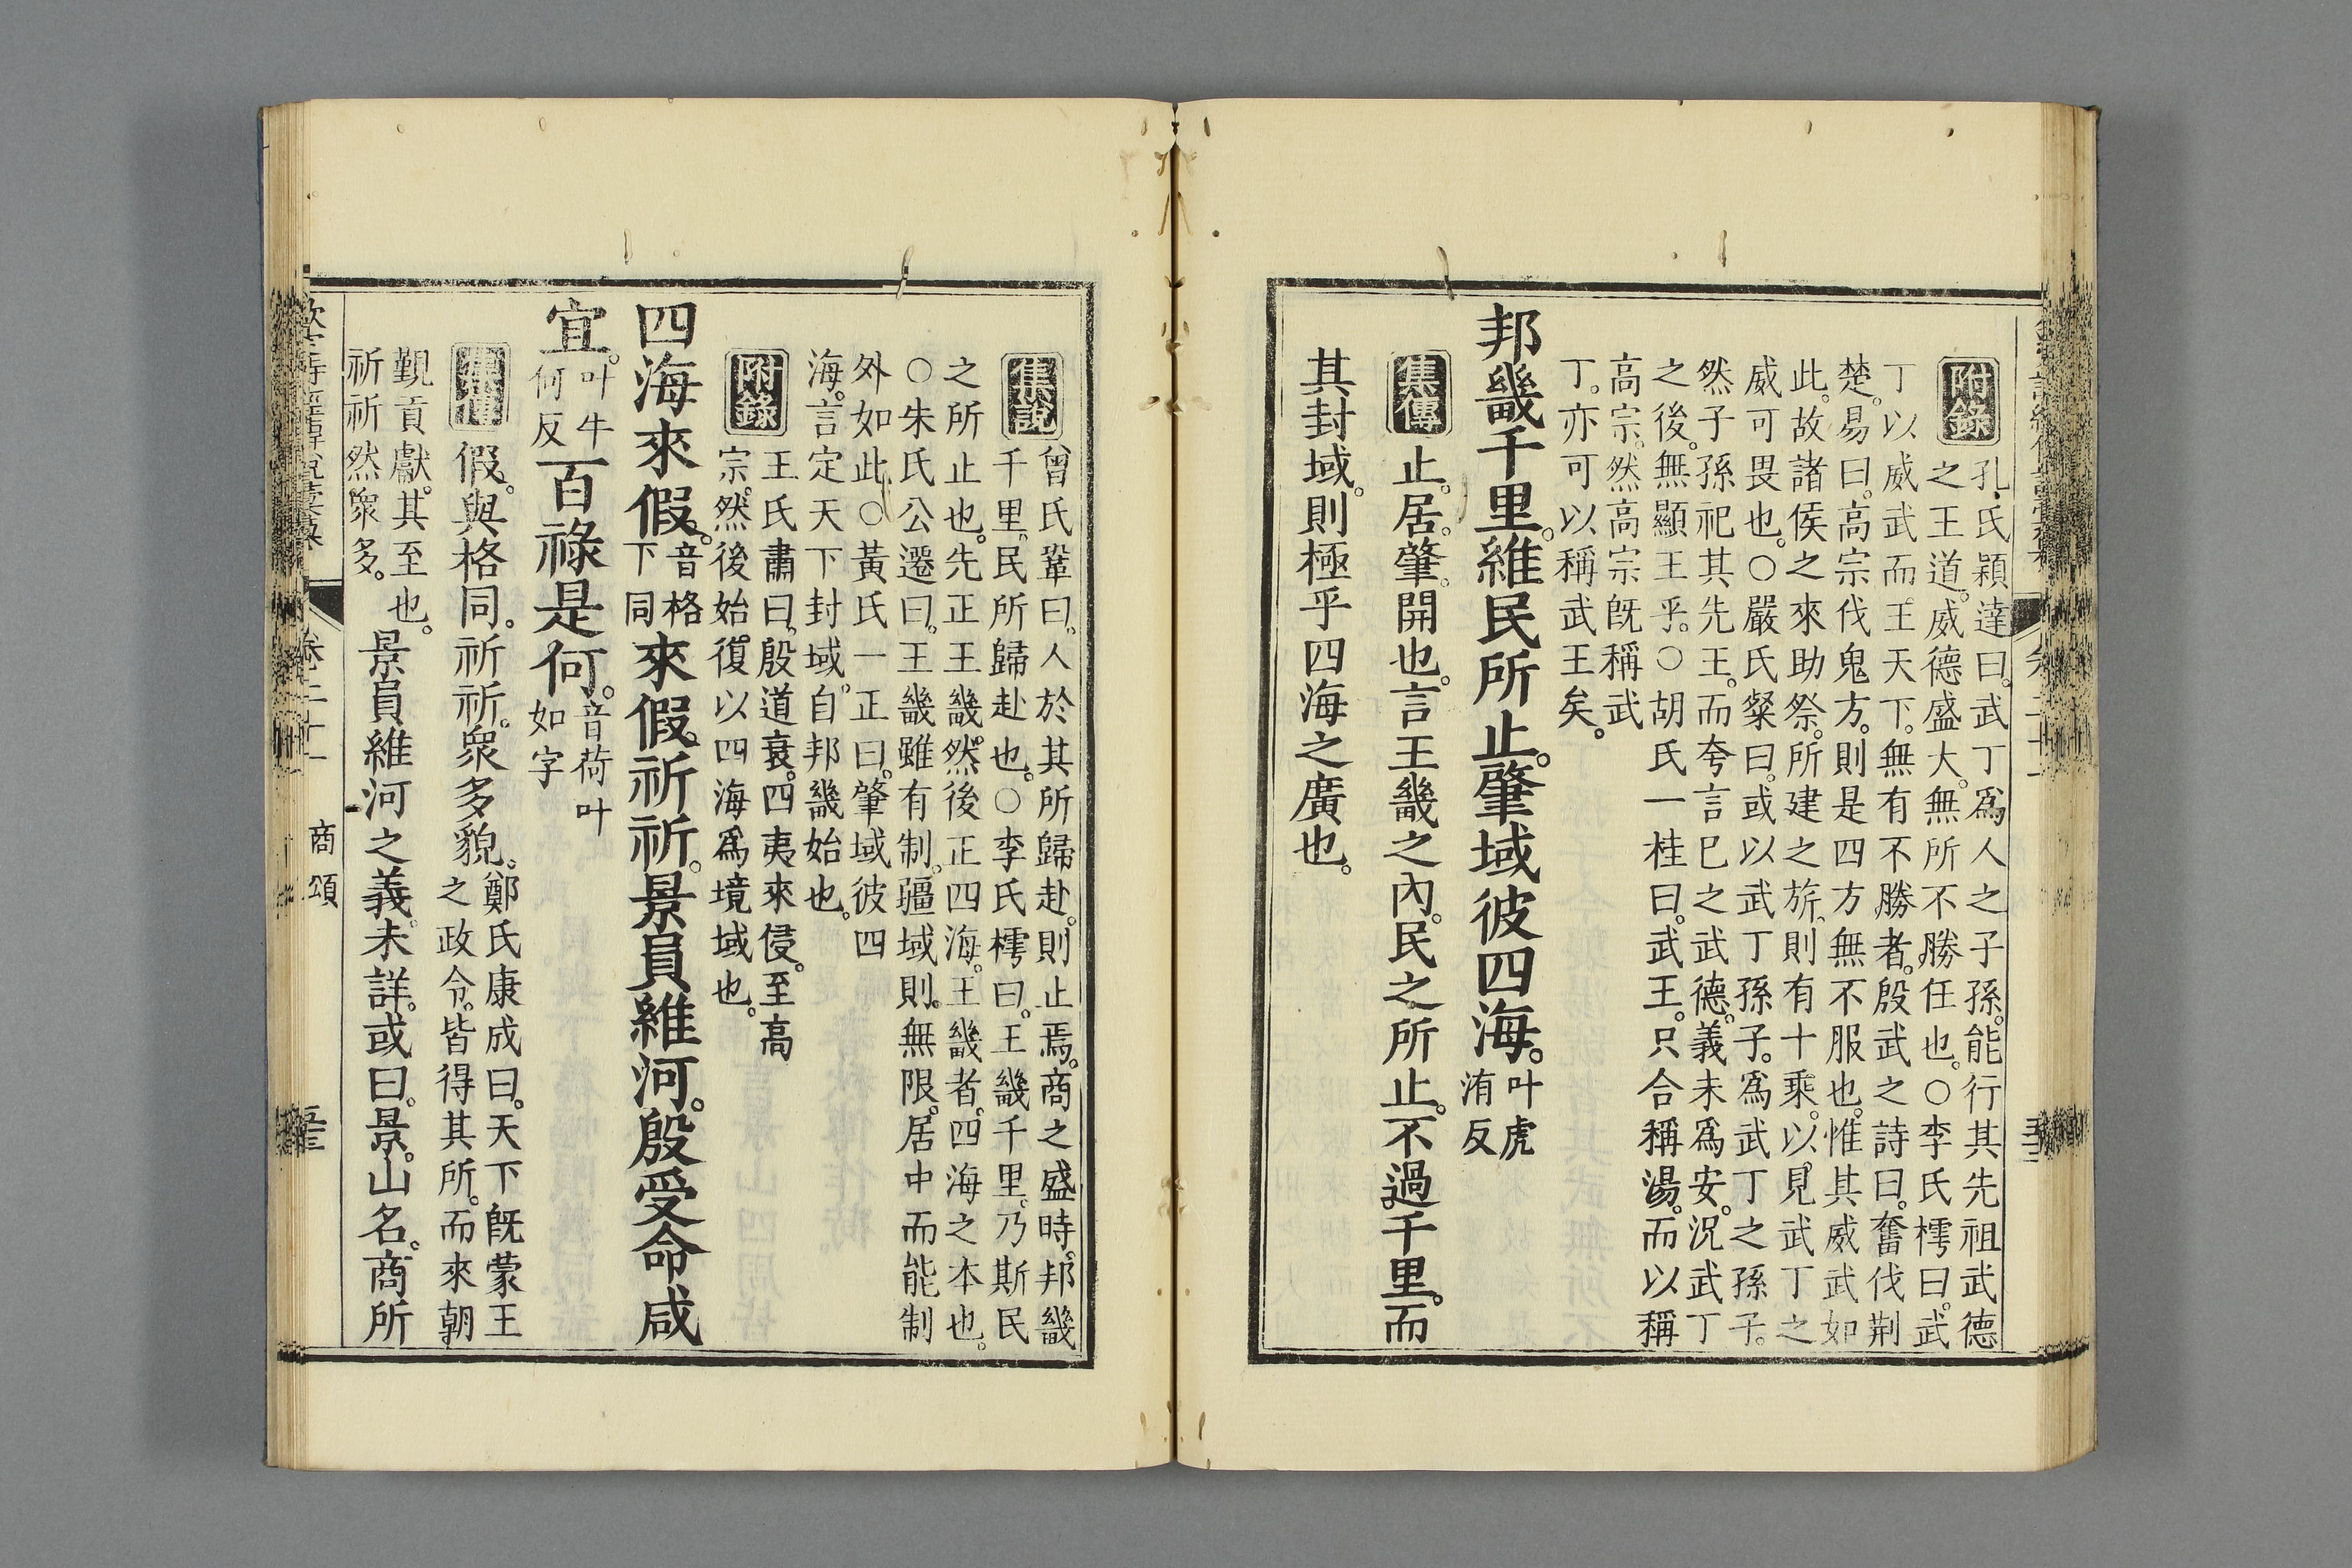 附錄
孔氏穎達曰。武丁爲人之子孫。能行其先祖武德
之王道。威德盛大。無所不勝任也。○李氏樗曰。武
丁以威武而王天下。無有不勝者。殷武之詩曰。奮伐荆
楚。易曰。高宗伐鬼方。則是四方無不服也。惟其威武如
此。故諸侯之來助祭。所建之旂。則有十乘。以見武丁之
威可畏也。○嚴氏粲曰。或以武丁孫子。爲武丁之孫子。
然子孫祀其先王。而夸言已之武德。義未爲安。況武丁
之後。無顯王乎。○胡氏一桂曰。武王。只合稱湯。而以稱
高宗。然高宗旣稱武
丁。亦可以稱武王矣。
邦畿千里。維民所止。肇域彼四海。叶虎
洧反
集傳
止。居。肇。開也。言王畿之內。民之所止。不過千里。而
其封域。則極乎四海之廣也。
集說
曾氏鞏曰。人於其所歸赴。則止焉。商之盛時。邦畿
千里。民所歸赴也。○李氏樗曰。王畿千里。乃斯民
之所止也。先正王畿。然後正四海。王畿者。四海之本也。
○朱氏公遷曰。王畿雖有制。疆域則無限。居中而能制
外如此。○黃氏一正曰。肇域彼四
海。言定天下封域。自邦畿始也。
附錄
王氏肅曰。殷道衰。四夷來侵。至高
宗。然後始復以四海爲境域也。
四海來假。音格
下同來假祈祈。景員維河。殷受命咸
宜。叶牛
何反百祿是何。音荷叶
如字
集傳
假。與格同。祈祈。衆多貌。鄭氏康成曰。天下旣蒙王
之政令。皆得其所。而來朝
覲貢獻。其至也。
祈祈然衆多。景員維河之義。未詳。或曰。景。山名。商所
卷二十一 商頌